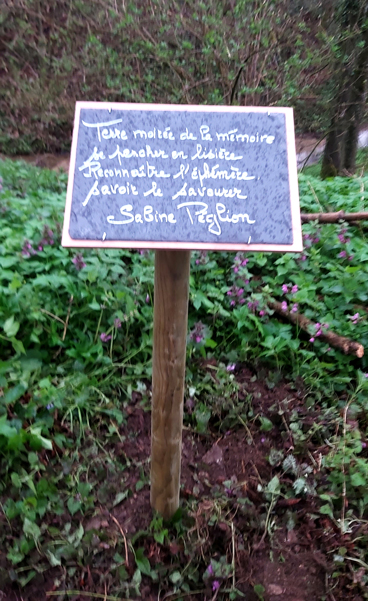 Terre moitée de la mémoire
se pencher en lisière
Reconnaître l'éphémère
savoir le savourer
Sabine Péglion